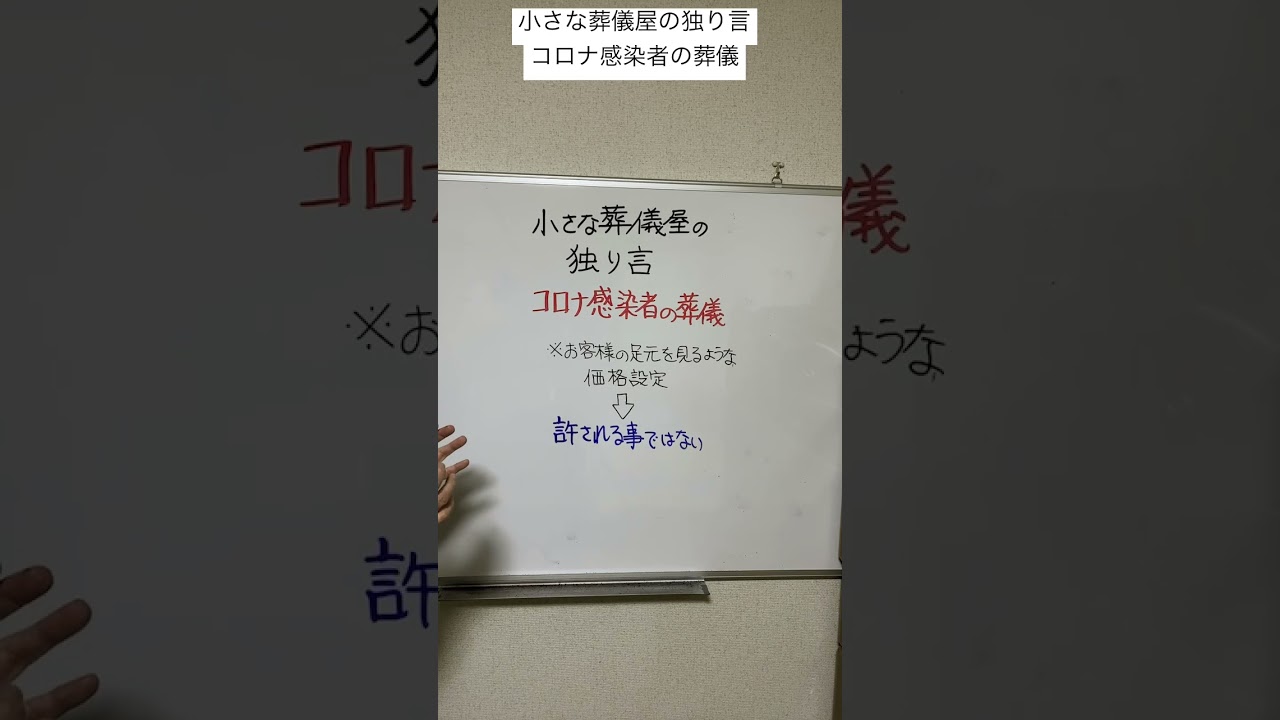 小さな葬儀屋の独り言
コロナ感染者の葬儀
小さな葬儀屋の
独り言
コロナ感染者の葬儀
※お客様の足元を見るような
価格設定
⇩
許される事ではない